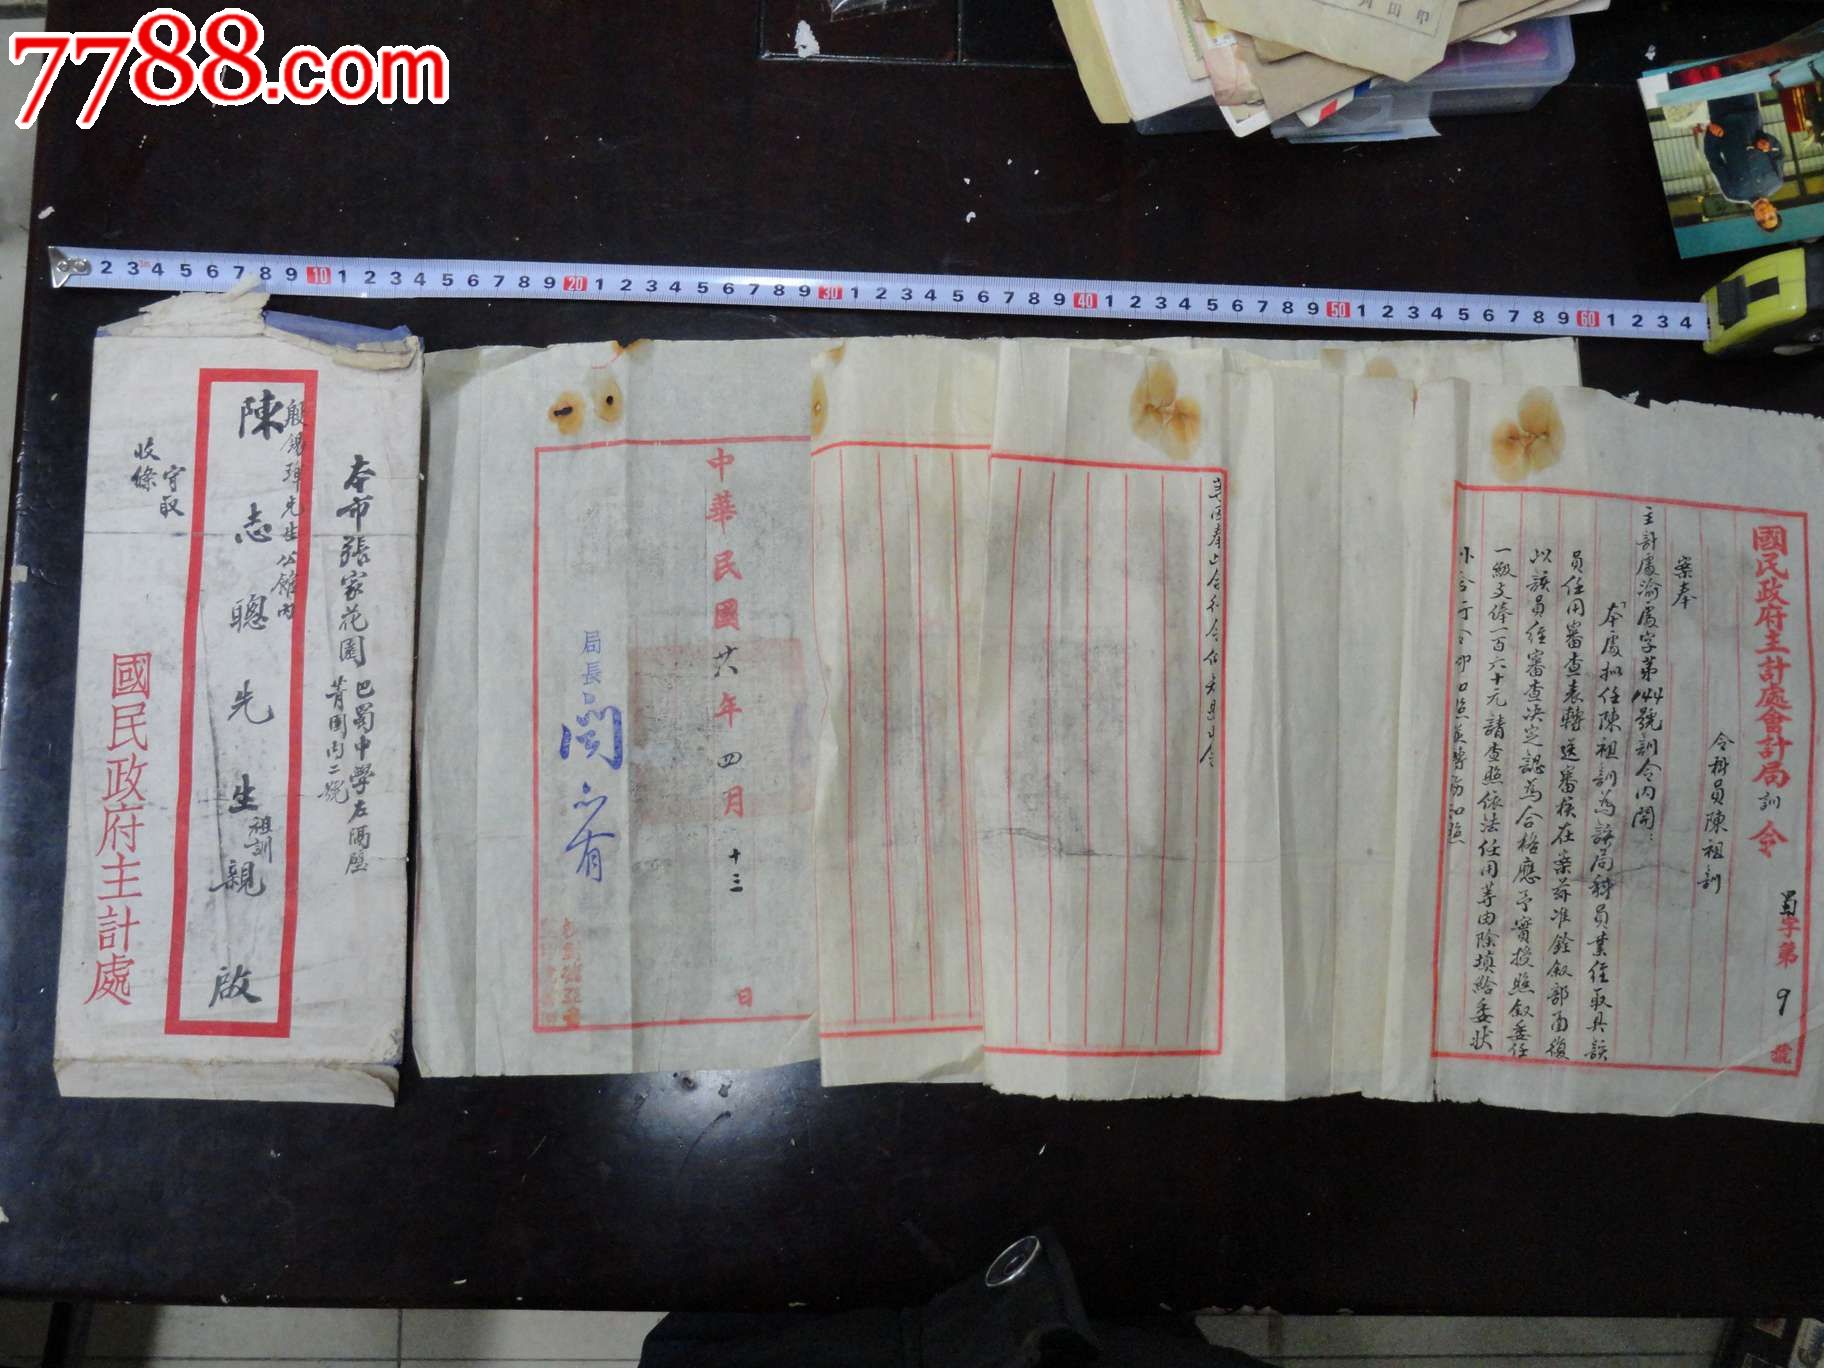 7788.com
2 3 4 5 6 7 8 9 10 1 2 3 4 5 6 7 8 9 20 1 2 3 4 5 6 7 8 9 30 1 2 3 4 5 6 7 8 9 40 1 2 3 4 5 6 7 8 9 50 1 2 3 4 5 6 7 8 9 60 1 2 3 4
本市張家花園巴蜀中學左隔壁
菁園內二號
殷錫璋先生公館內
陳志聰先生親啟
祖訓
守取
收條
國民政府主計處
國民政府主計處會計局訓令
蜀字第9號
令科員陳祖訓
案奉
主計處渝處字第144號訓令內開：
本處擬任陳祖訓為該局科員業經取具該
員任用審查表轉送審核在案茲准銓敘部函復
以該員經審查決定認為合格應予實授照敘委任
一級支俸一百六十元請查照依法任用等由除填給委狀
外合行令仰
等因奉此合行令仰知照此令
中華民國廿八年四月十三日
局長聞亦有